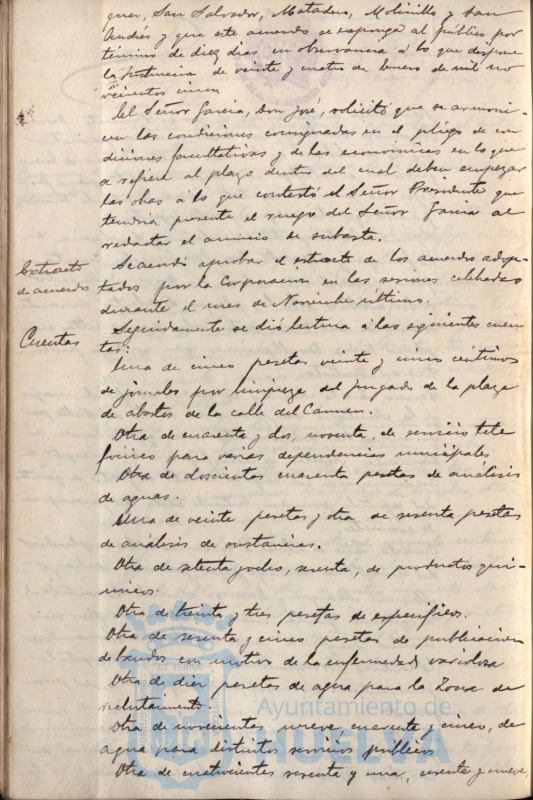 guer, San Salvador, Mataderos, Molinillo y San
Andrés y que este acuerdo se exponga al público por
término de diez dias en observancia á lo que dispone
la Instruccion de veinte y cuatro de Enero de mil no
vecientos cinco
El Señor García, Don José, solicitó que se armoni-
cen las condiciones consignadas en el pliego de con
diciones facultativas y de las económicas en lo que
se refiere al plazo dentro del cual deben empezar
las obras á lo que contestó el Señor Presidente que
tendría presente el ruego del Señor García al
redactar el anuncio de subasta.
Extracto
de acuerdos
Se acordó aprobar el extracto de los acuerdos adop-
tados por la Corporación en las sesiones celebradas
durante el mes de Noviembre último.
Cuentas
Seguidamente se dió lectura á las siguientes cuen
tas:
Una de cinco pesetas veinte y cinco céntimos
de jornales por limpieza del juzgado de la plaza
de abastos de la calle del Carmen.
Otra de cuarenta y dos, noventa, de servicio tele
fónico para varias dependencias municipales
Otra de doscientas cuarenta pesetas de análisis
de aguas.
Una de veinte pesetas y otra de sesenta pesetas
de análisis de sustancias.
Otra de setenta y ocho, sesenta, de productos quí-
micos.
Otra de treinta y tres pesetas de específicos.
Otra de sesenta y cinco pesetas de publicacion
de bandos con motivo de la enfermedad variolosa
Otra de diez pesetas de agua para la Zona de
reclutamiento.
Otra de novecientos nueve cuarenta y cinco, de
agua para distintos servicios públicos
Otra de cuatrocientas sesenta y una, sesenta y nueve,
Ayuntamiento de
HUELVA